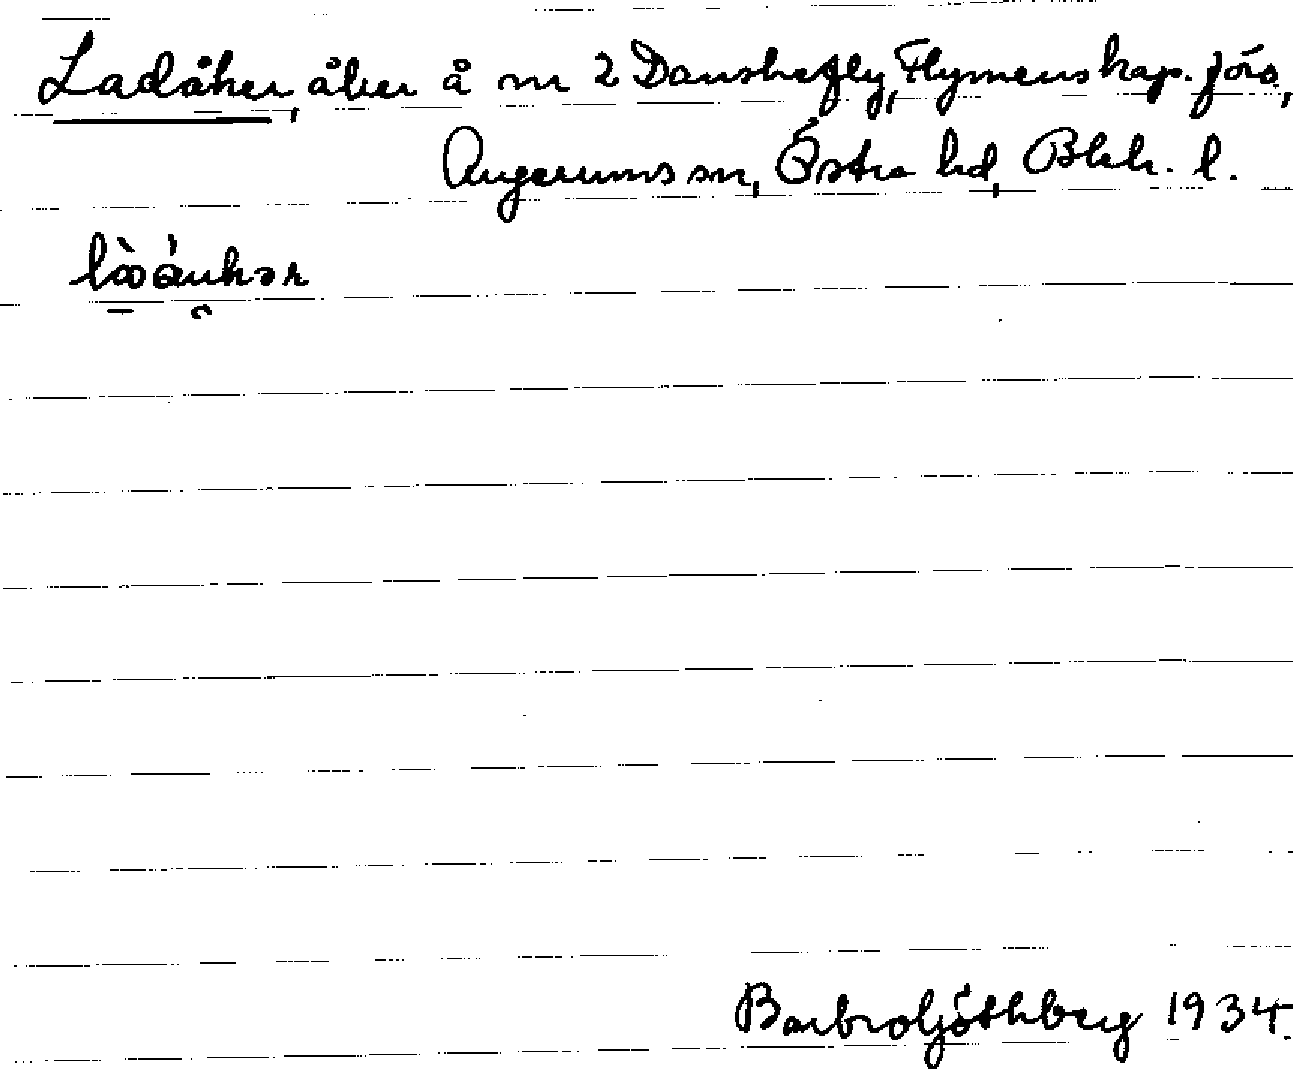 Ladåker, åker å nr 2 Danskefly, Flymens kap. förs,
Augerums sn, Östra hd, Blek. l.
Barbro Götberg 1934.